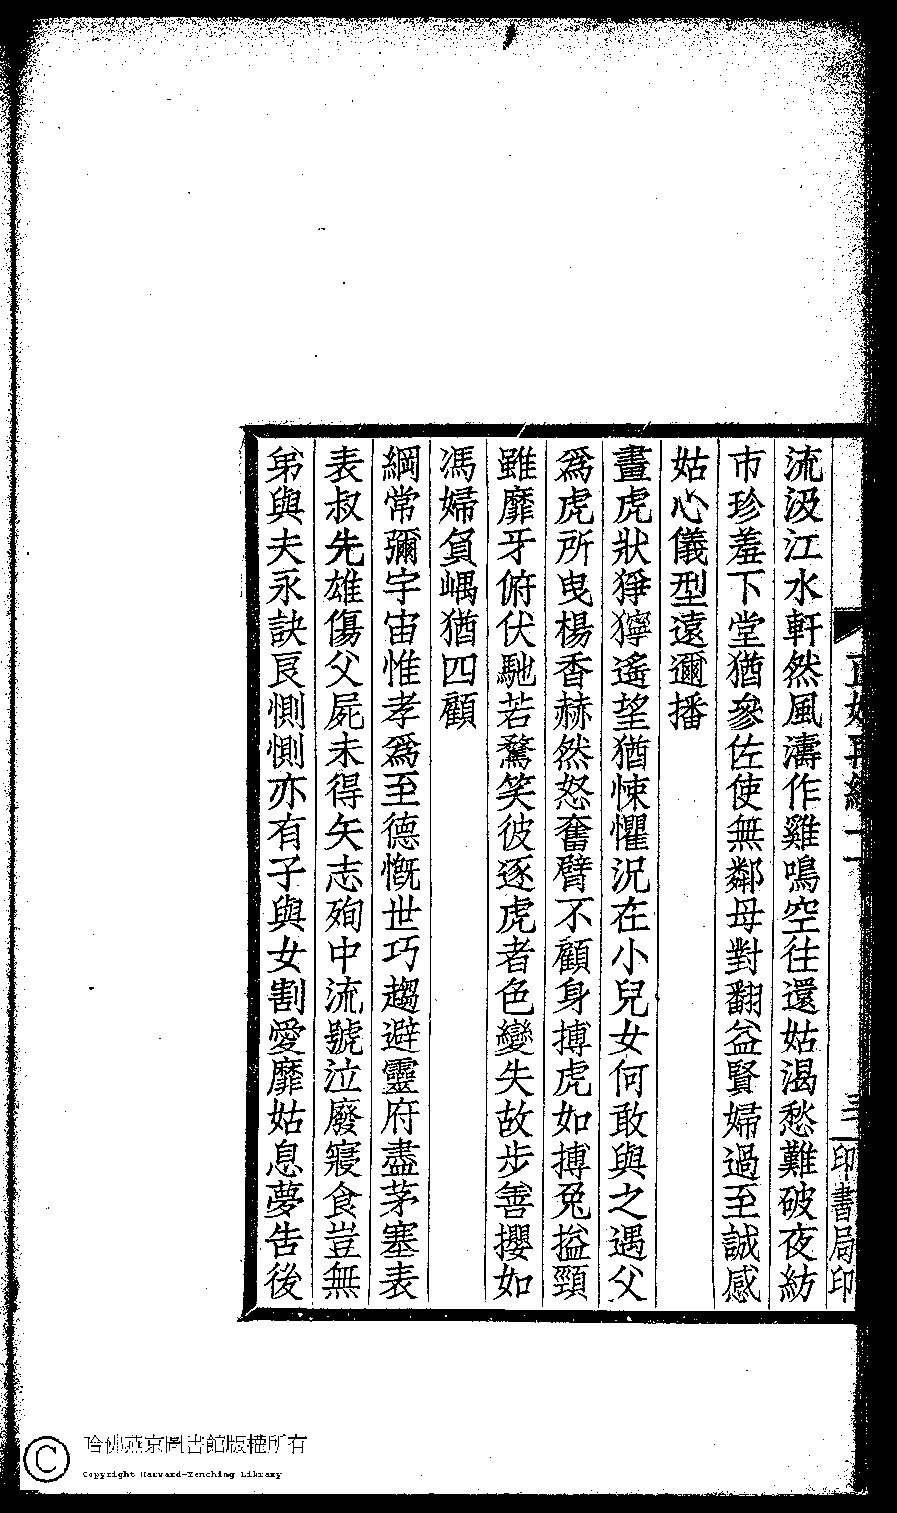 流汲江水軒然風濤作雞鳴空往還姑渴愁難破夜紡
市珍羞下堂猶參佐使無鄰母對翻益賢婦過至誠感
姑心儀型遠邇播
畫虎狀猙獰遙望猶悚懼況在小兒女何敢與之遇父
爲虎所曳楊香赫然怒奮臂不顧身搏虎如搏兔搤頸
雖靡牙俯伏馳若騖笑彼逐虎者色變失故步善攖如
馮婦負嵎猶四顧
綱常彌宇宙惟孝爲至德慨世巧趨避靈府盡茅塞表
表叔先雄傷父屍未得矢志殉中流號泣廢寢食豈無
弟與夫永訣良惻惻亦有子與女割愛靡姑息夢告後
三
印書局印
哈佛燕京圖書館版權所有
Copyright Harvard-Yenching Library